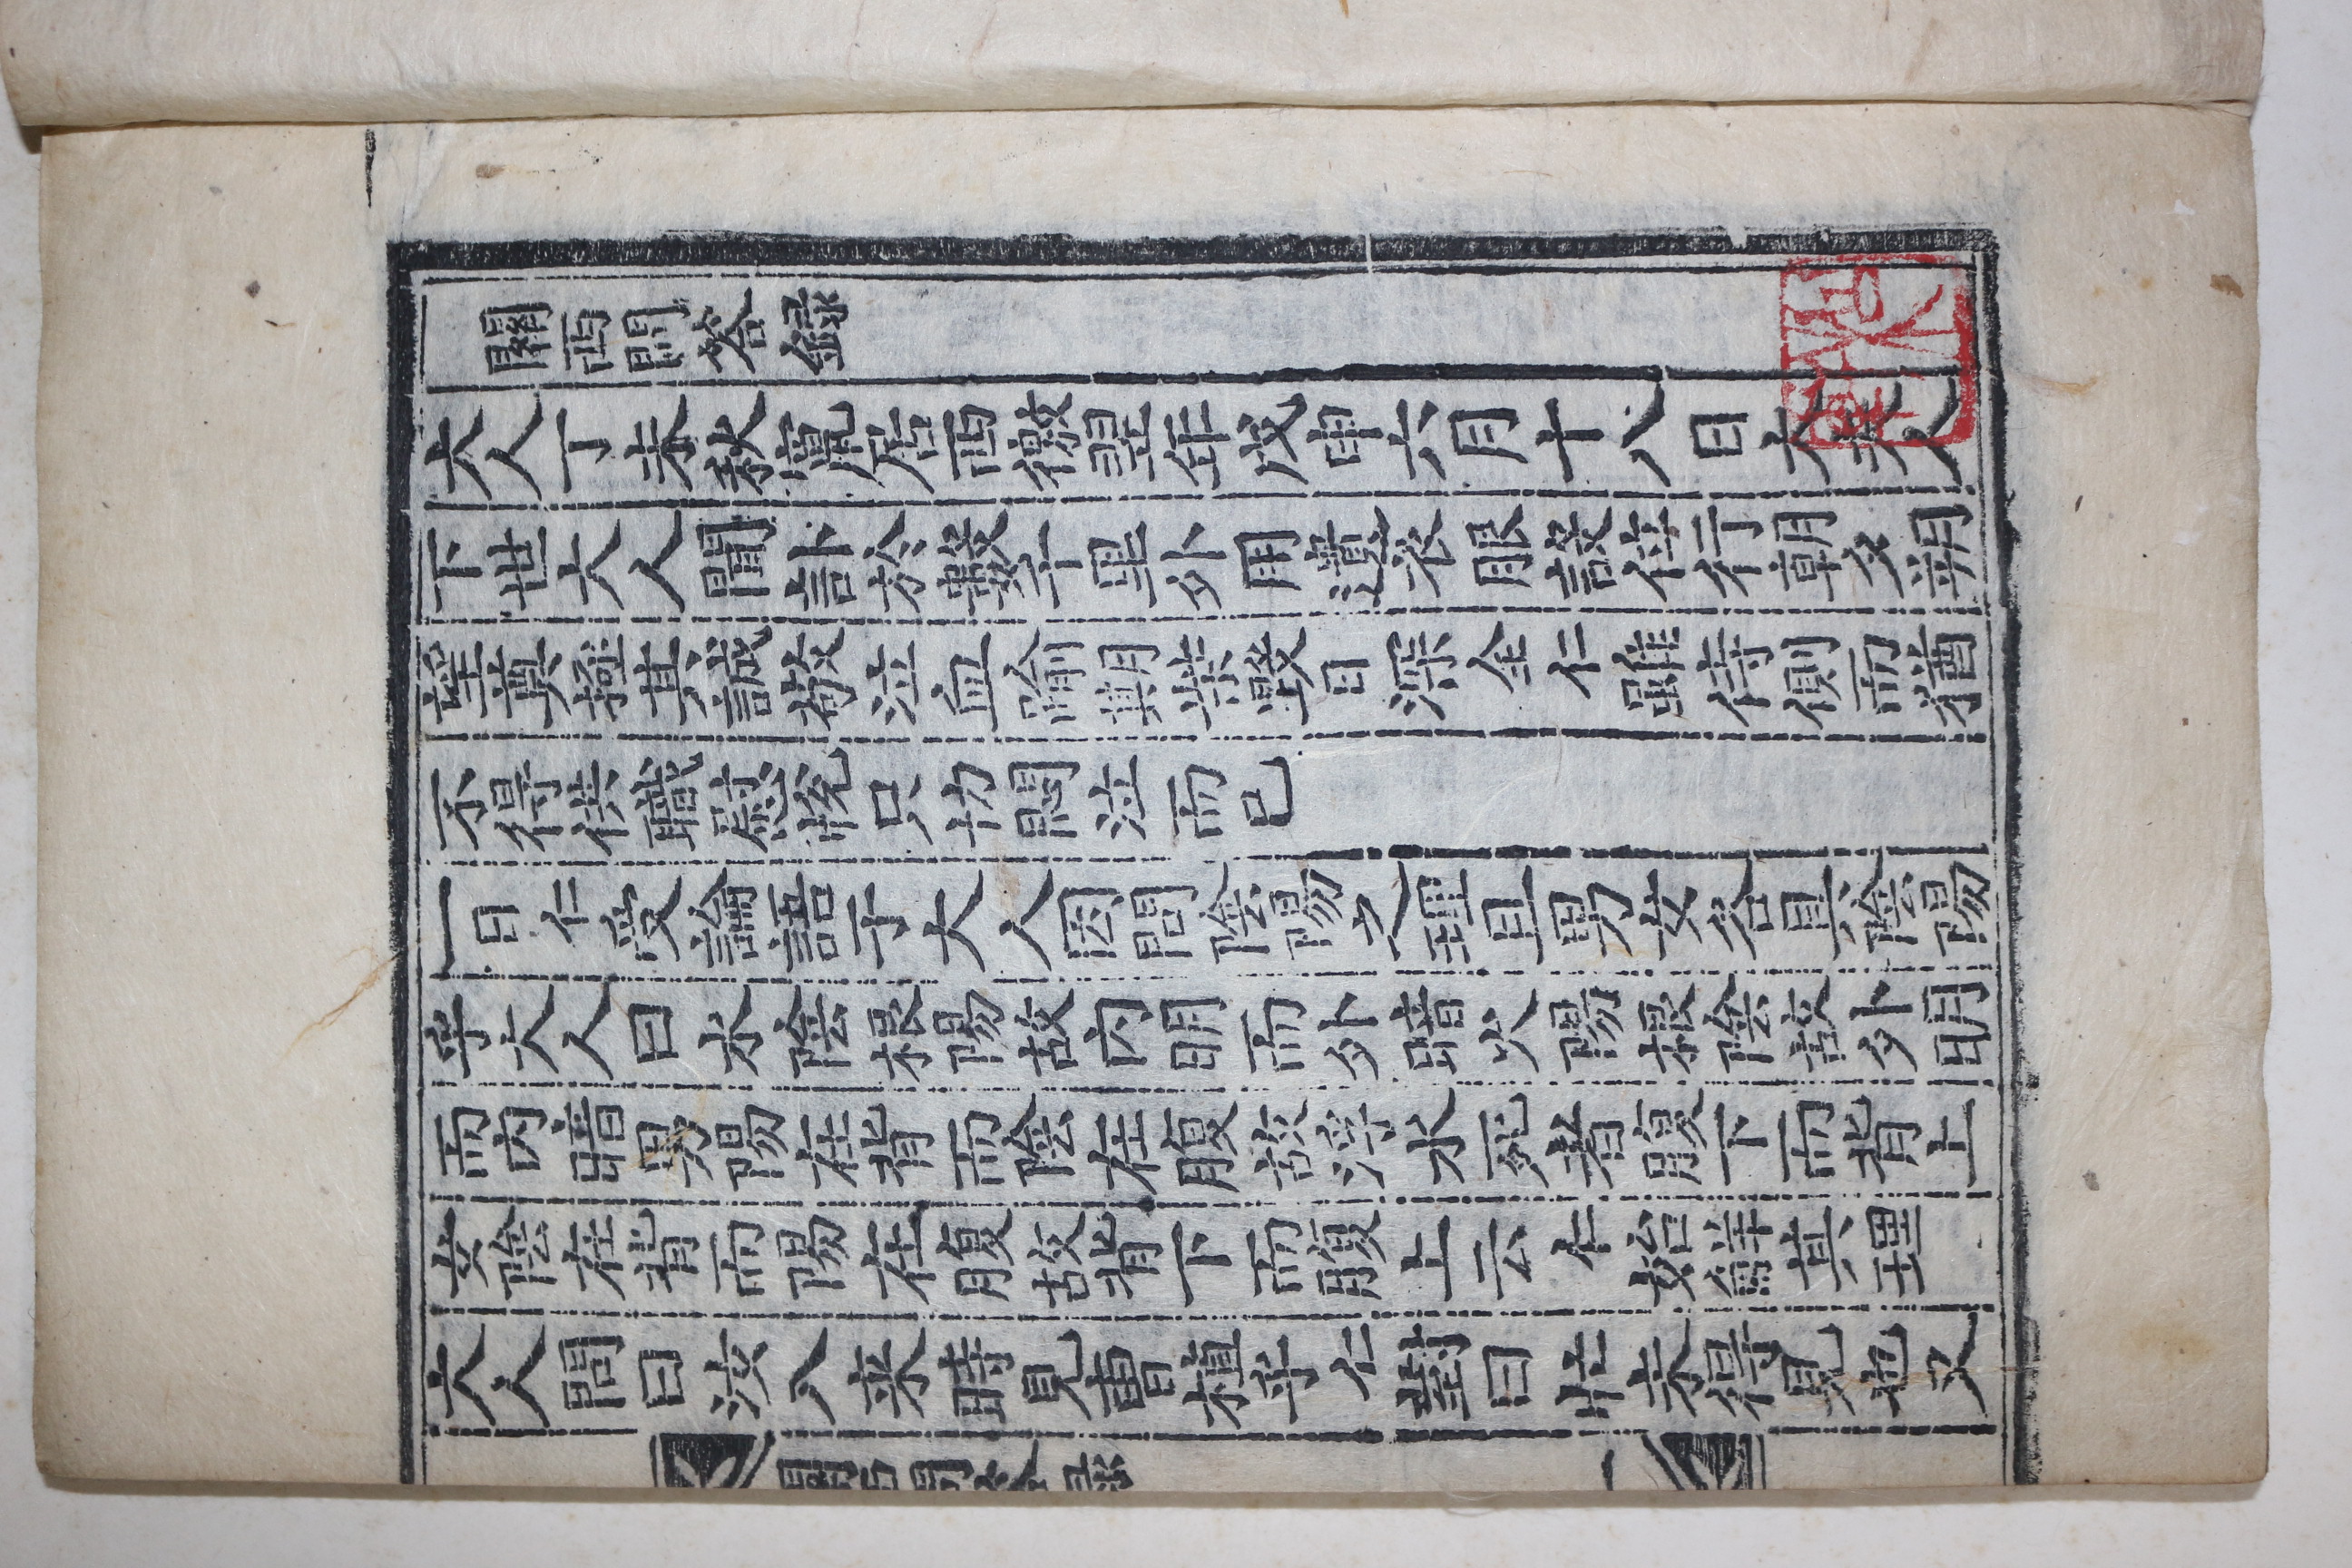 關西問答錄
大人丁未秋竄居西徼翌年戊申六月十八日大夫人
下世大人聞訃於數千里外用遺衣服設位行朝夕朔
望奠極其誠敬泣血踰期柴毀日深全仁雖侍側而猶
不得供職慰悅只切悶泣而已
一日仁受論語于大人因問陰陽之理且男女各具陰陽
乎大人曰水陰根陽故內明而外暗火陽根陰故外明
而內暗男陽在背而陰在腹故浮水死者腹下而背上
女陰在背而陽在腹故背下而腹上云仁始觧其理
大人問曰汝入来時見曺植乎仁對曰忙未得見也又
關西問答錄
一